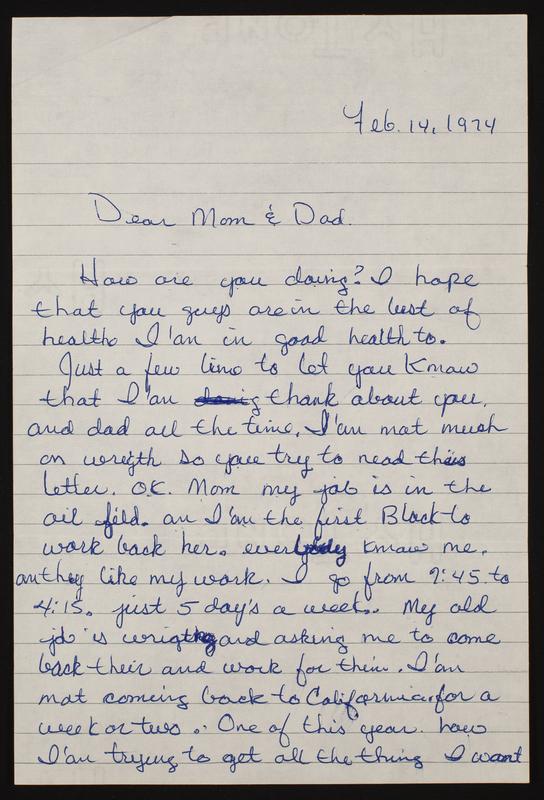 Feb. 14, 1974
Dear Mom & Dad.
How are you doing? I hope
that you guys are in the best of
health I'an in good health to.
Just a few lino to let you Know
that I'an thank about you.
and dad all the time. I'an not much
on wreigth so you try to read this
letter. O.K. Mom my job is in the
oil fild. an I'an the first Black to
work back her. every know me.
an they like my work. I go from 9:45 to
4:15. just 5 day's a week. My old
job is and asking me to come
back their and work for them. I'an
not coming back to California for a
week or two. One of this year. how
I'an trying to get all the thing I want